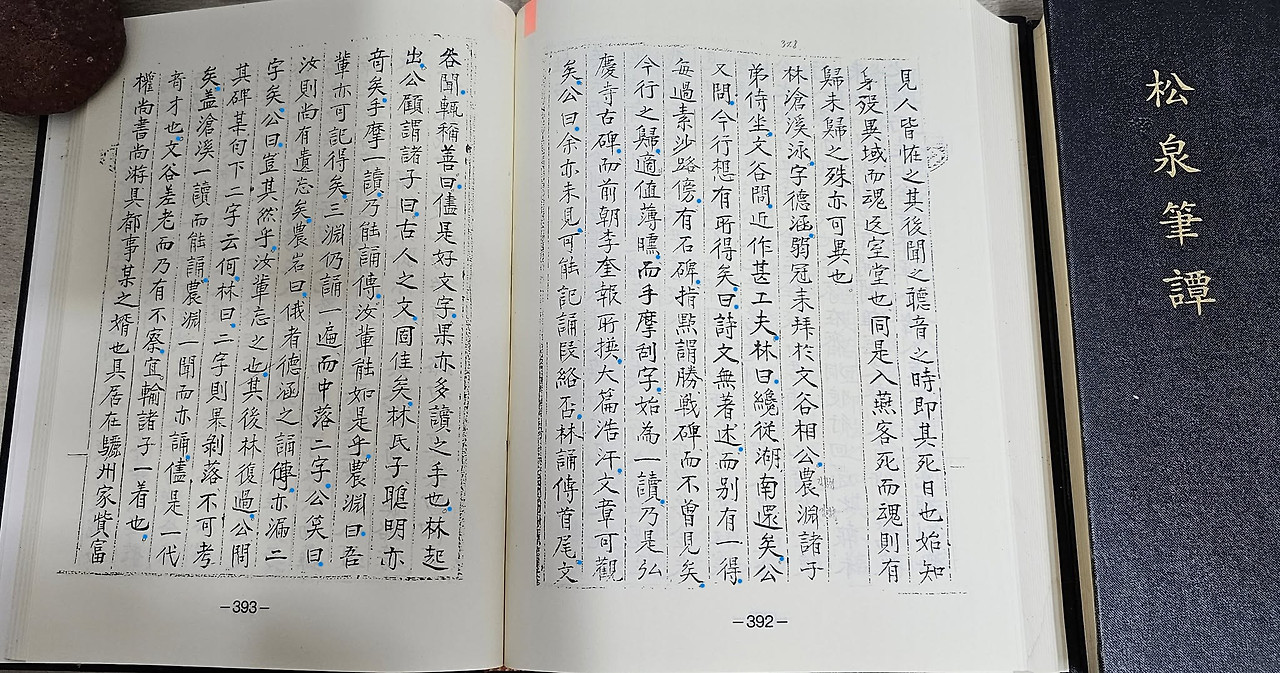 松泉筆譚
見人皆怪之其後聞之聽音之時即其死日也始知
身歿異域而魂返室堂也同是入燕客死而魂則有
歸未歸之殊亦可異也
林滄溪泳字德涵弱冠來拜於文谷相公農淵諸子
弟侍坐文谷問近作甚工夫林曰纔從湖南還矣公
又問今行想有所得矣曰詩文無著述而別有一得
每過素沙路傍有石碑指點謂勝戰碑而不曾見矣
今行之歸適值薄曛而手摩刮字始為一讀乃是弘
慶寺古碑而前朝李奎報所撰大篇浩汗文章可觀
矣公曰余亦未見可能記誦段絡否林誦傳首尾文
−392−
谷聞輒稱善曰儘是好文字果亦多讀之手也林起
出公顧謂諸子曰古人之文固佳矣林氏子聰明亦
奇矣手摩一讀乃能誦傳汝輩能如是乎農淵曰吾
輩亦可記得矣三淵仍誦一遍而中落二字公笑曰
汝則尚有遺忘矣農岩曰俄者德涵之誦傳亦漏二
字矣公曰豈其然乎汝輩忘之也其後林復過公問
其碑某句下二字云何林曰二字則果剝落不可考
矣盖滄溪一讀而能誦農淵一聞而亦誦儘是一代
奇才也文谷差老而乃有不察宜輸諸子一着也
權尚書尚游具都事某之婿也具居在驪州家貲富
−393−